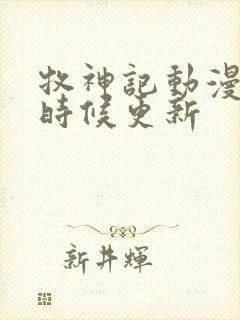 牧神記動漫
時候更新
新井輝